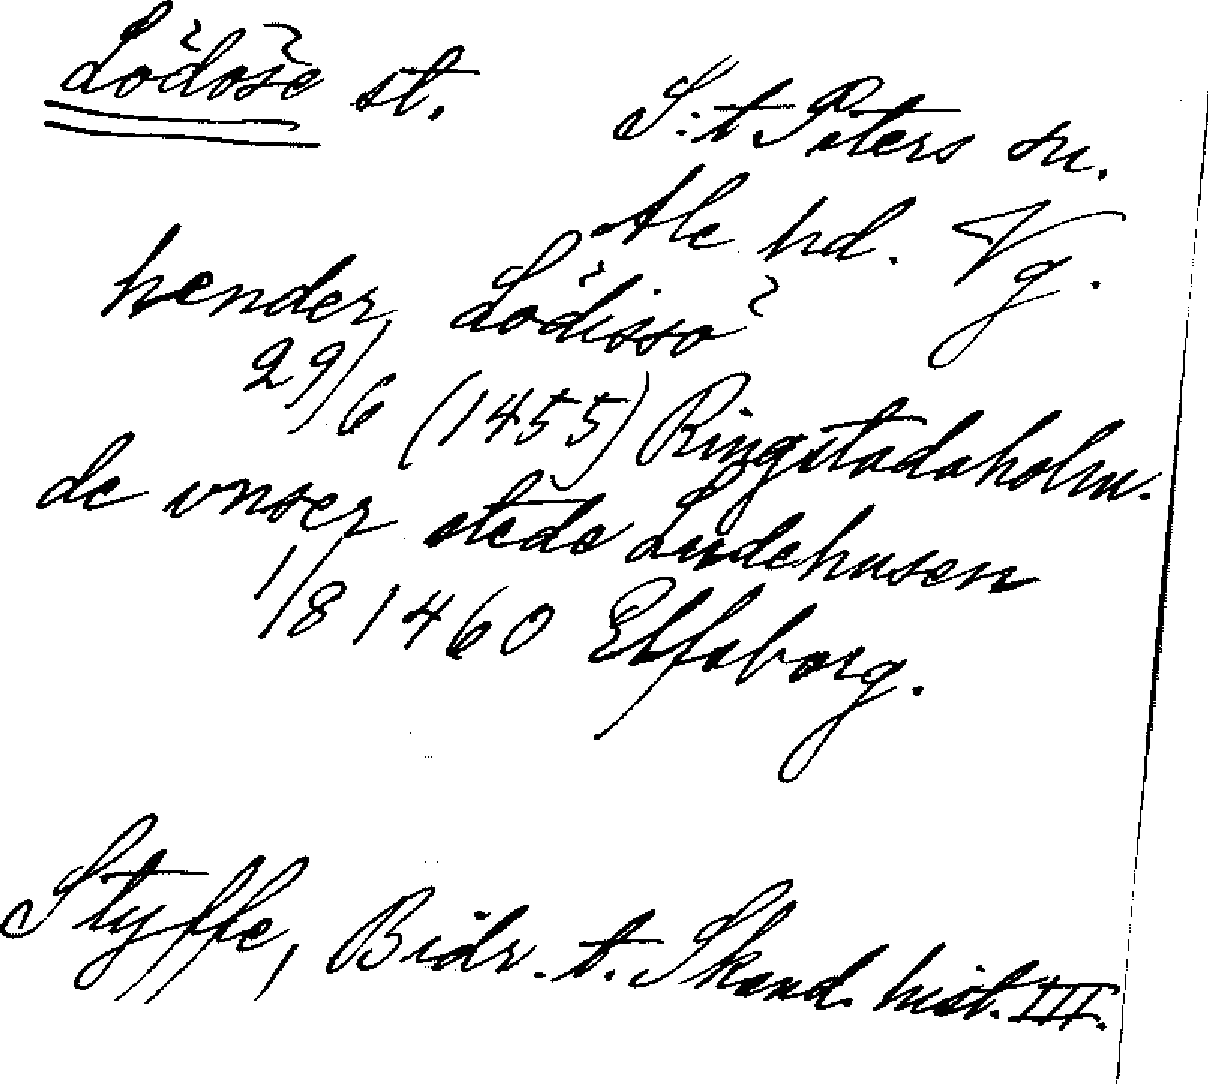 Lödöse st. S:t Peters sn.
Ale hd. Vg.
hender, Lödissö
29/6 (1455) Ringstadaholm.
de vnser stede Ludehusen
1/8 1460 Elfsborg.
Styffe, Bidr. t. Skand. hist. III.